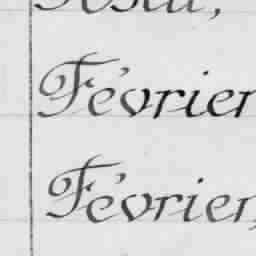 Février
Février,